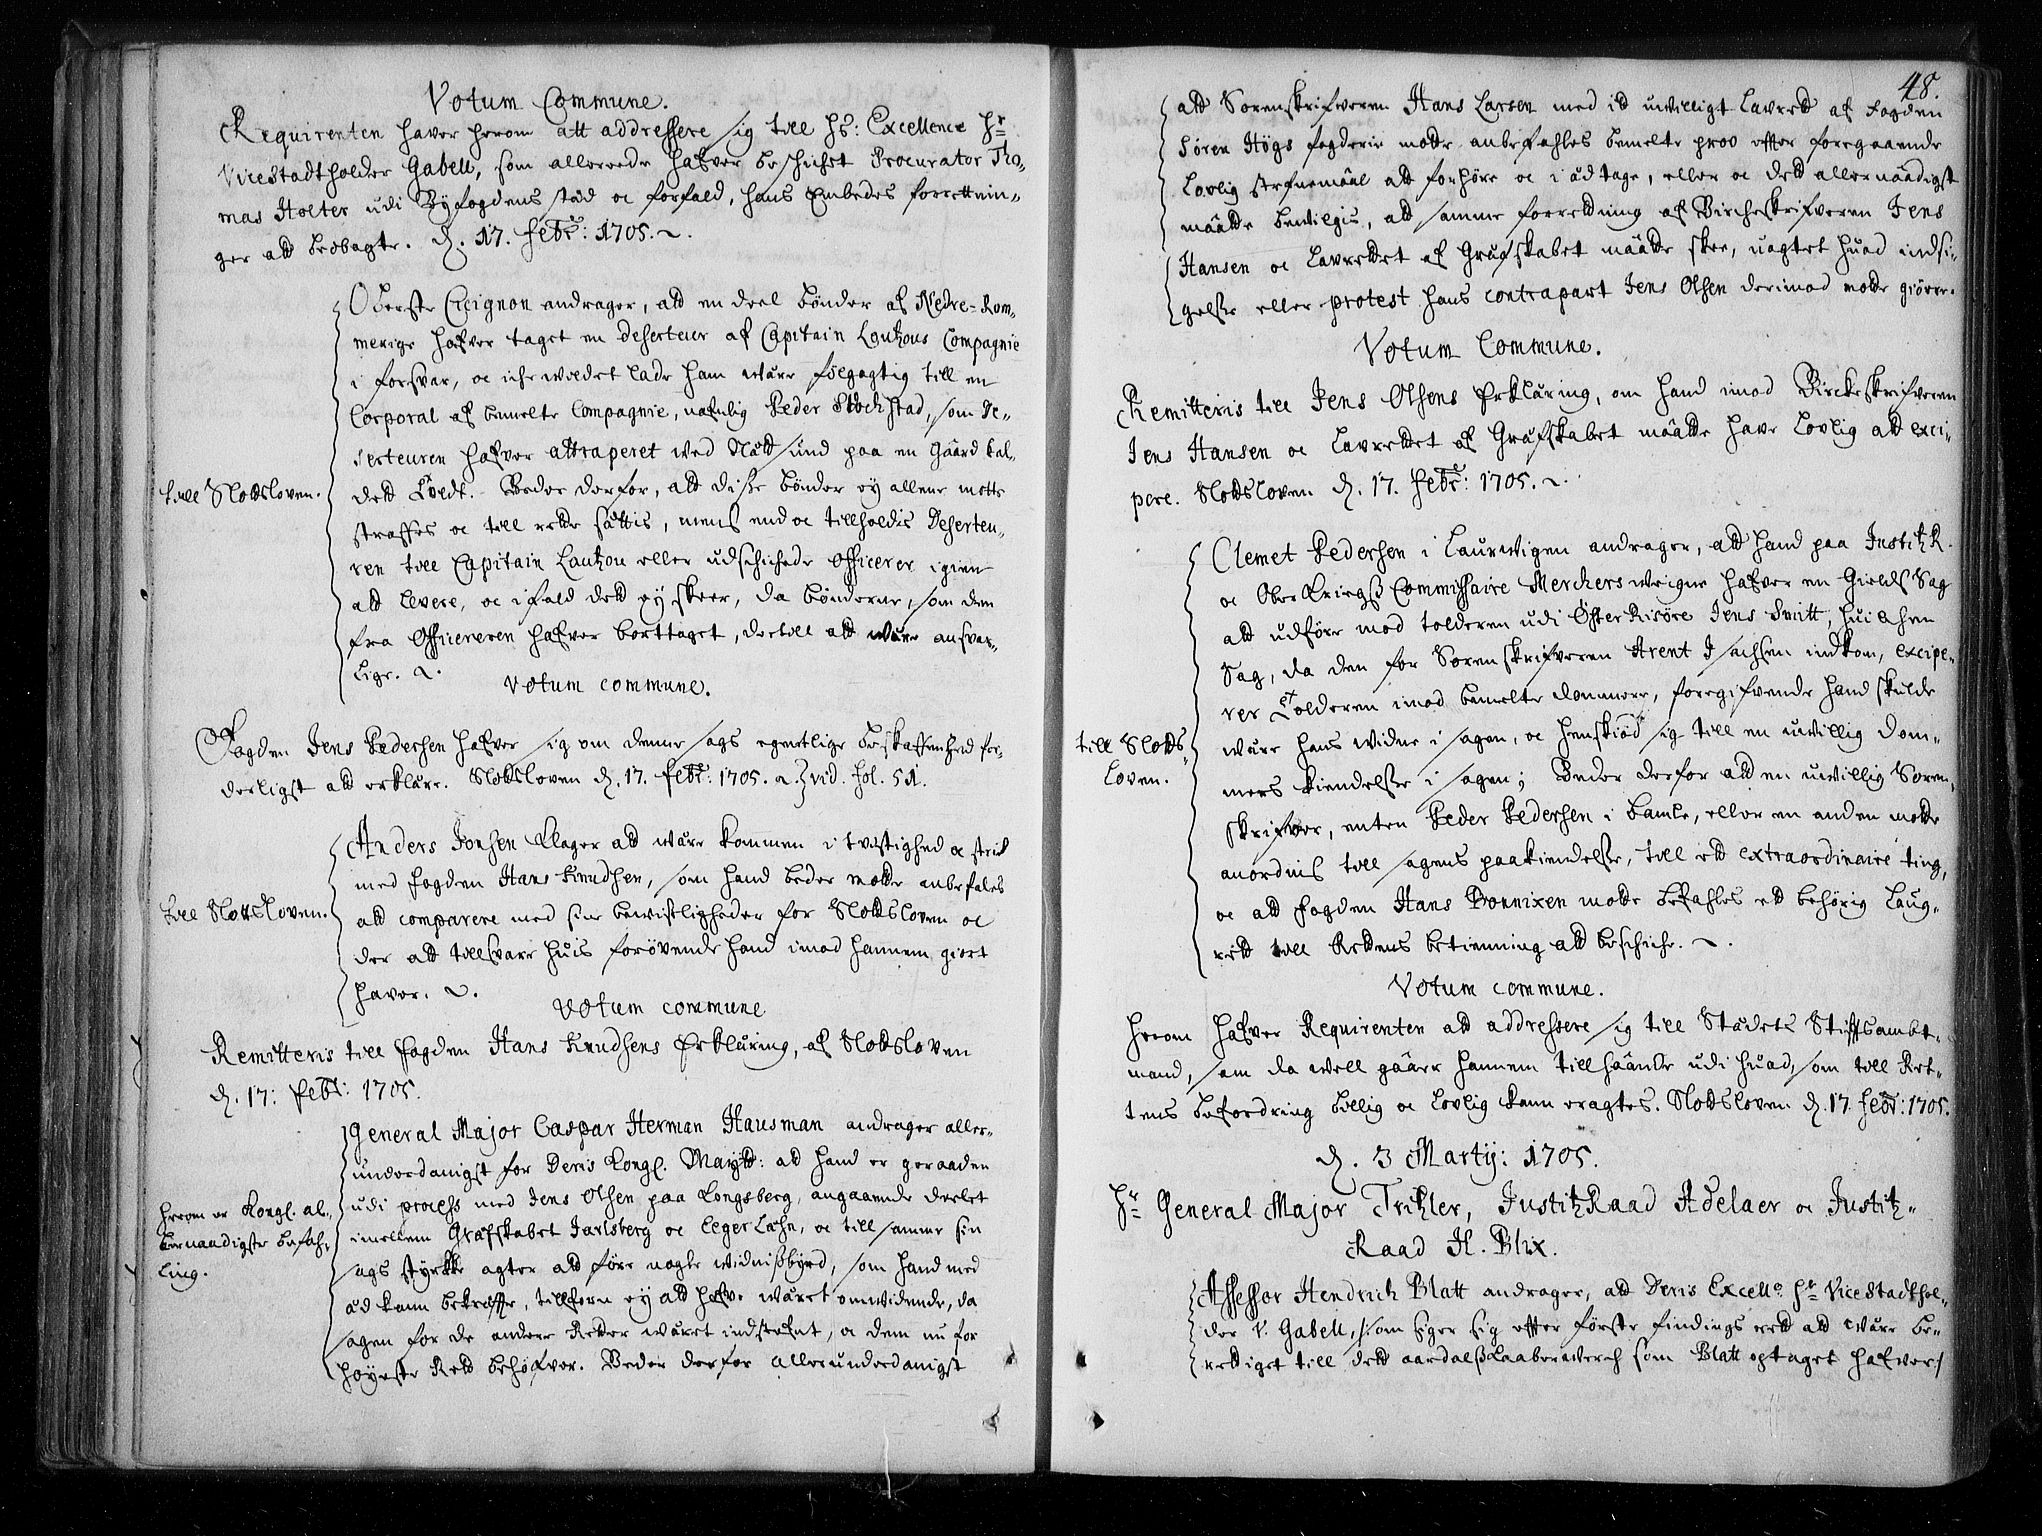 Votum Commune.
Requirenten haver herom att addressere sig till hs: Excellence Hr
Vicestadtholder Gabell, som allereede hafver beschichet Procurator Tho-
mas Holter udi Byfogdens stæd oc forfald, hans Embedes forrettnin-
ger att beobagte. d. 17. febr: 1705.
Oberste Cicignon andrager, att en deel bønder af Nedre-Rom-
merige hafver taget en deserteur af Capitain Loutzous Compagnie
i forsvar, oc iche wildet lade ham wære følgagtig till en
Corporal af bemelte Compagnie, nafnlig Peder Stochstad, som De-
serteuren hafver attraperet wed Nættsund paa en Gaard kal-
dett Tvedt. Beder derfor, att disse bønder ey allene motte
straffes oc till rette sættis, mens end oc tillholdis Deserteu-
ren till Capitain Loutzou eller udschichede Officerer igien
att levere, oc ifald dett ey skeer, da bønderne, som dem
fra Officereren hafver borttaget, dertill att wære ansvar-
lige.
till Slottsloven.
votum commune.
Fogden Jens Pedersen hafver sig om denne sags egentlige beskaffenhed for-
derligst att erklære. Slottsloven d. 17. febr: 1705. vid. fol. 51.
Anders Jonsen klager att wære kommen i tvistighed oc striid
med fogden Hans Knudsen, som hand beder motte anbefales
att comparere med sine bewisligheder for Slottsloven oc
der att tillsvare huis forøvende hand imod hannem giort
haver.
till Slottsloven.
votum commune
Remitteris till fogden Hans Knudsens Erklæring, af Slottsloven
d. 17: febr: 1705.
General Major Caspar Herman Hausman andrager aller-
underdanigst for Deris Kongl. Maytt: att hand er geraaden
udi process med Jens Olsen paa Kongsberg, angaaende deelet
imellem Grafskabet Jarlsberg oc Eeger Læhn, oc till samme sin
sags styrkke agter att føre nogle widnissbyrd, som hand med
æd kann bekræffte, tillforn ey att hafve wæret omwidende, da
sagen for de andere Retter wæret indstefnt, oc dem nu for
høyeste Rett behøfver. Beder derfor allerunderdanigst
herom er Kongl. al-
lernaadigste befah-
ling.
48.
att Sorenskrifveren Hans Larsen med id uwilligt lavrett af fogden
Søren Høgs fogderie motte anbefahles bemelte prov effter foregaaende
lovlig stefnemåal att forhøre oc i æd tage, eller oc dett allernåadigst
måatte bewilgis, att samme forretning af Bircheskrifveren Jens
Hansen oc lavrettet af Grafskabet måatte skee, uagtet huad indsi-
gelse eller protest hans contrapart Jens Olsen derimod motte giøre.
Votum Commune.
Remitteris till Jens Olsens Erklæring, om hand imod Birckeskrifveren
Jens Hansen oc lavrettet af Grafskabet måatte have lovlig att exci-
pere. Slottsloven d. 17. febr: 1705.
Clemet Pedersen i Laurwigen andrager, att hand paa Justitz R.
oc Ober Kriegss Commissaire Merckers weigne hafver en Gields Sag
att udføre mod tolderen udi Øster Risøre Jens Smitt, huilchen
Sag, da den for Sorenskrifveren Arent Isachsen indkom, excipe-
rer Tolderen imod bemelte dommere, foregifvende hand skulde
wære hans widne i sagen, oc henskiød sig till en uwillig dom-
mers kiendelse i sagen; Beder derfor att en uwillig Soren-
skrifver, enten Peder Pedersen i bamle, eller en anden motte
anordnis till sagens paakiendelse, till ett extraordinaire ting,
oc att fogden Hans Bonnixen motte befahles ett behørig Laug-
rett till Rettens betienning att beschiche.
till Slotts-
loven.
Votum commune.
herom hafver Requirenten att addressere sig till Stædets Stifftsambt-
mand, som da well gåaer hannem tillhåande udi huad, som till Ret-
tens befordring billig oc lovlig kann eragtes. Slottsloven d. 17. febr: 1705.
d. 3 Martij: 1705.
Hr General Major Tritzler, JustitzRaad Adelaer oc Justitz-
Raad H. Blix.
Assessor Hendrich Blatt andrager, att Deris Excello Hr Vice Stadthol-
der v. Gabell, som siger sig effter første findings rett att wære be-
rettiget till dett aardalss kaaberwerch som Blatt optaget hafver,